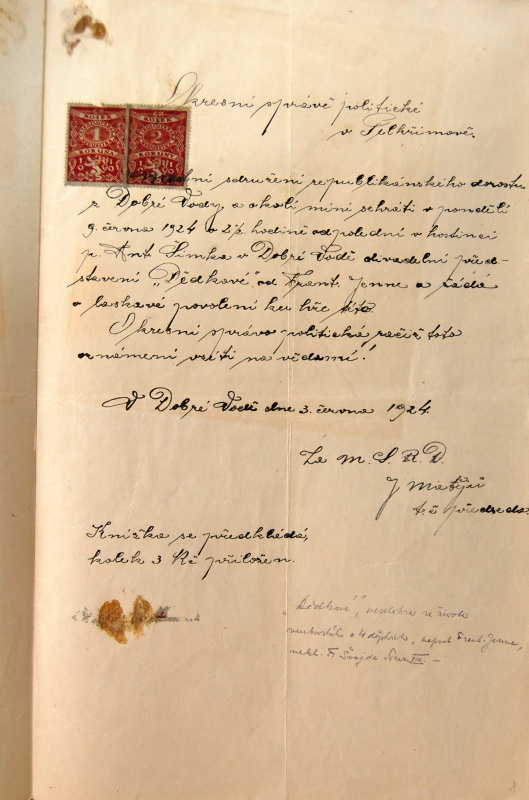 Okresní správě politické
v Pelhřimově.
KOLEK
1
KORUNA
1919
KOLEK
2
KORUNY
1919
sdružení republikánského dorostu
z Dobré Vody a okolí míní sehráti v pondělí
9. června 1924 o 2½ hodině odpolední v hostinci
p. Ant. Šimka v Dobré Vodě divadelní před-
stavení "Dědkové" od Frant. Jenne a žádá
o laskavé povolení ku hře této.
Okresní správo politická račiž toto
oznámení vzíti na vědomí!
V Dobré Vodě dne 3. června 1924.
Za M. S. R. D.
J
t. č. předseda.
Knížka se předkládá,
kolek 3 Kč přiložen.
"Dědkové", veselohra ze života
venkovského o 4 dějstvích, napsal Frant. Jenne,
nakl. F. Švejda
8